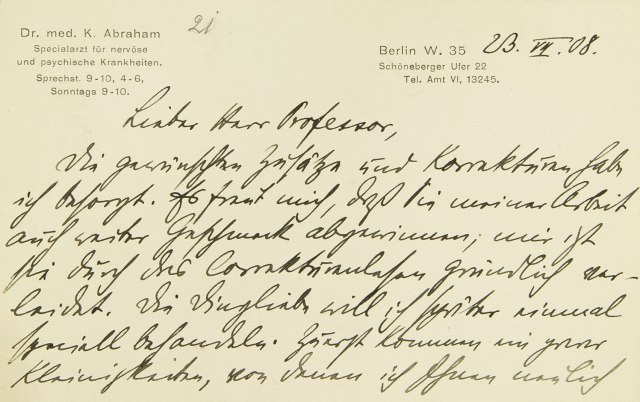 Dr. med. K. Abraham
Specialarzt für nervöse
und psychische Krankheiten.
Sprechst. 9-10, 4-6,
Sonntags 9-10.
21
Berlin W. 35 23. VII. 08.
Schöneberger Ufer 22
Tel. Amt VI, 13245.
Lieber Herr Professor,
Die gewünschten Zusätze und Korrekturen habe
ich besorgt. Es freut mich, daß Sie meiner Arbeit
auch weiter Geschmack abgewinnen; mir ist
sie durch das Correkturenlesen gründlich ver-
leidet. Die Dingliebe will ich später einmal
speciell behandeln. Zuerst kommen ein paar
Kleinigkeiten, von denen ich Ihnen neulich